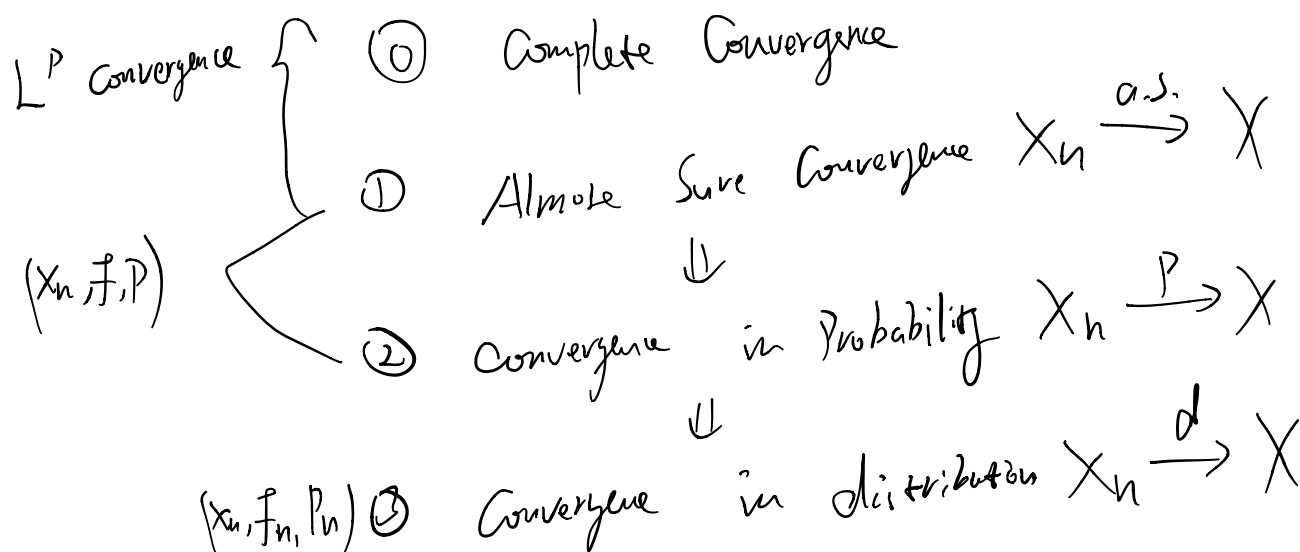 L^P Convergence { ⓪ Complete Convergence
① Almost Sure Convergence X_n \xrightarrow{a.s.} X
⇓
(X_n, F, P) ② Convergence in Probability X_n \xrightarrow{P} X
⇓
(X_n, F_n, P_n) ③ Convergence in distribution X_n \xrightarrow{d} X